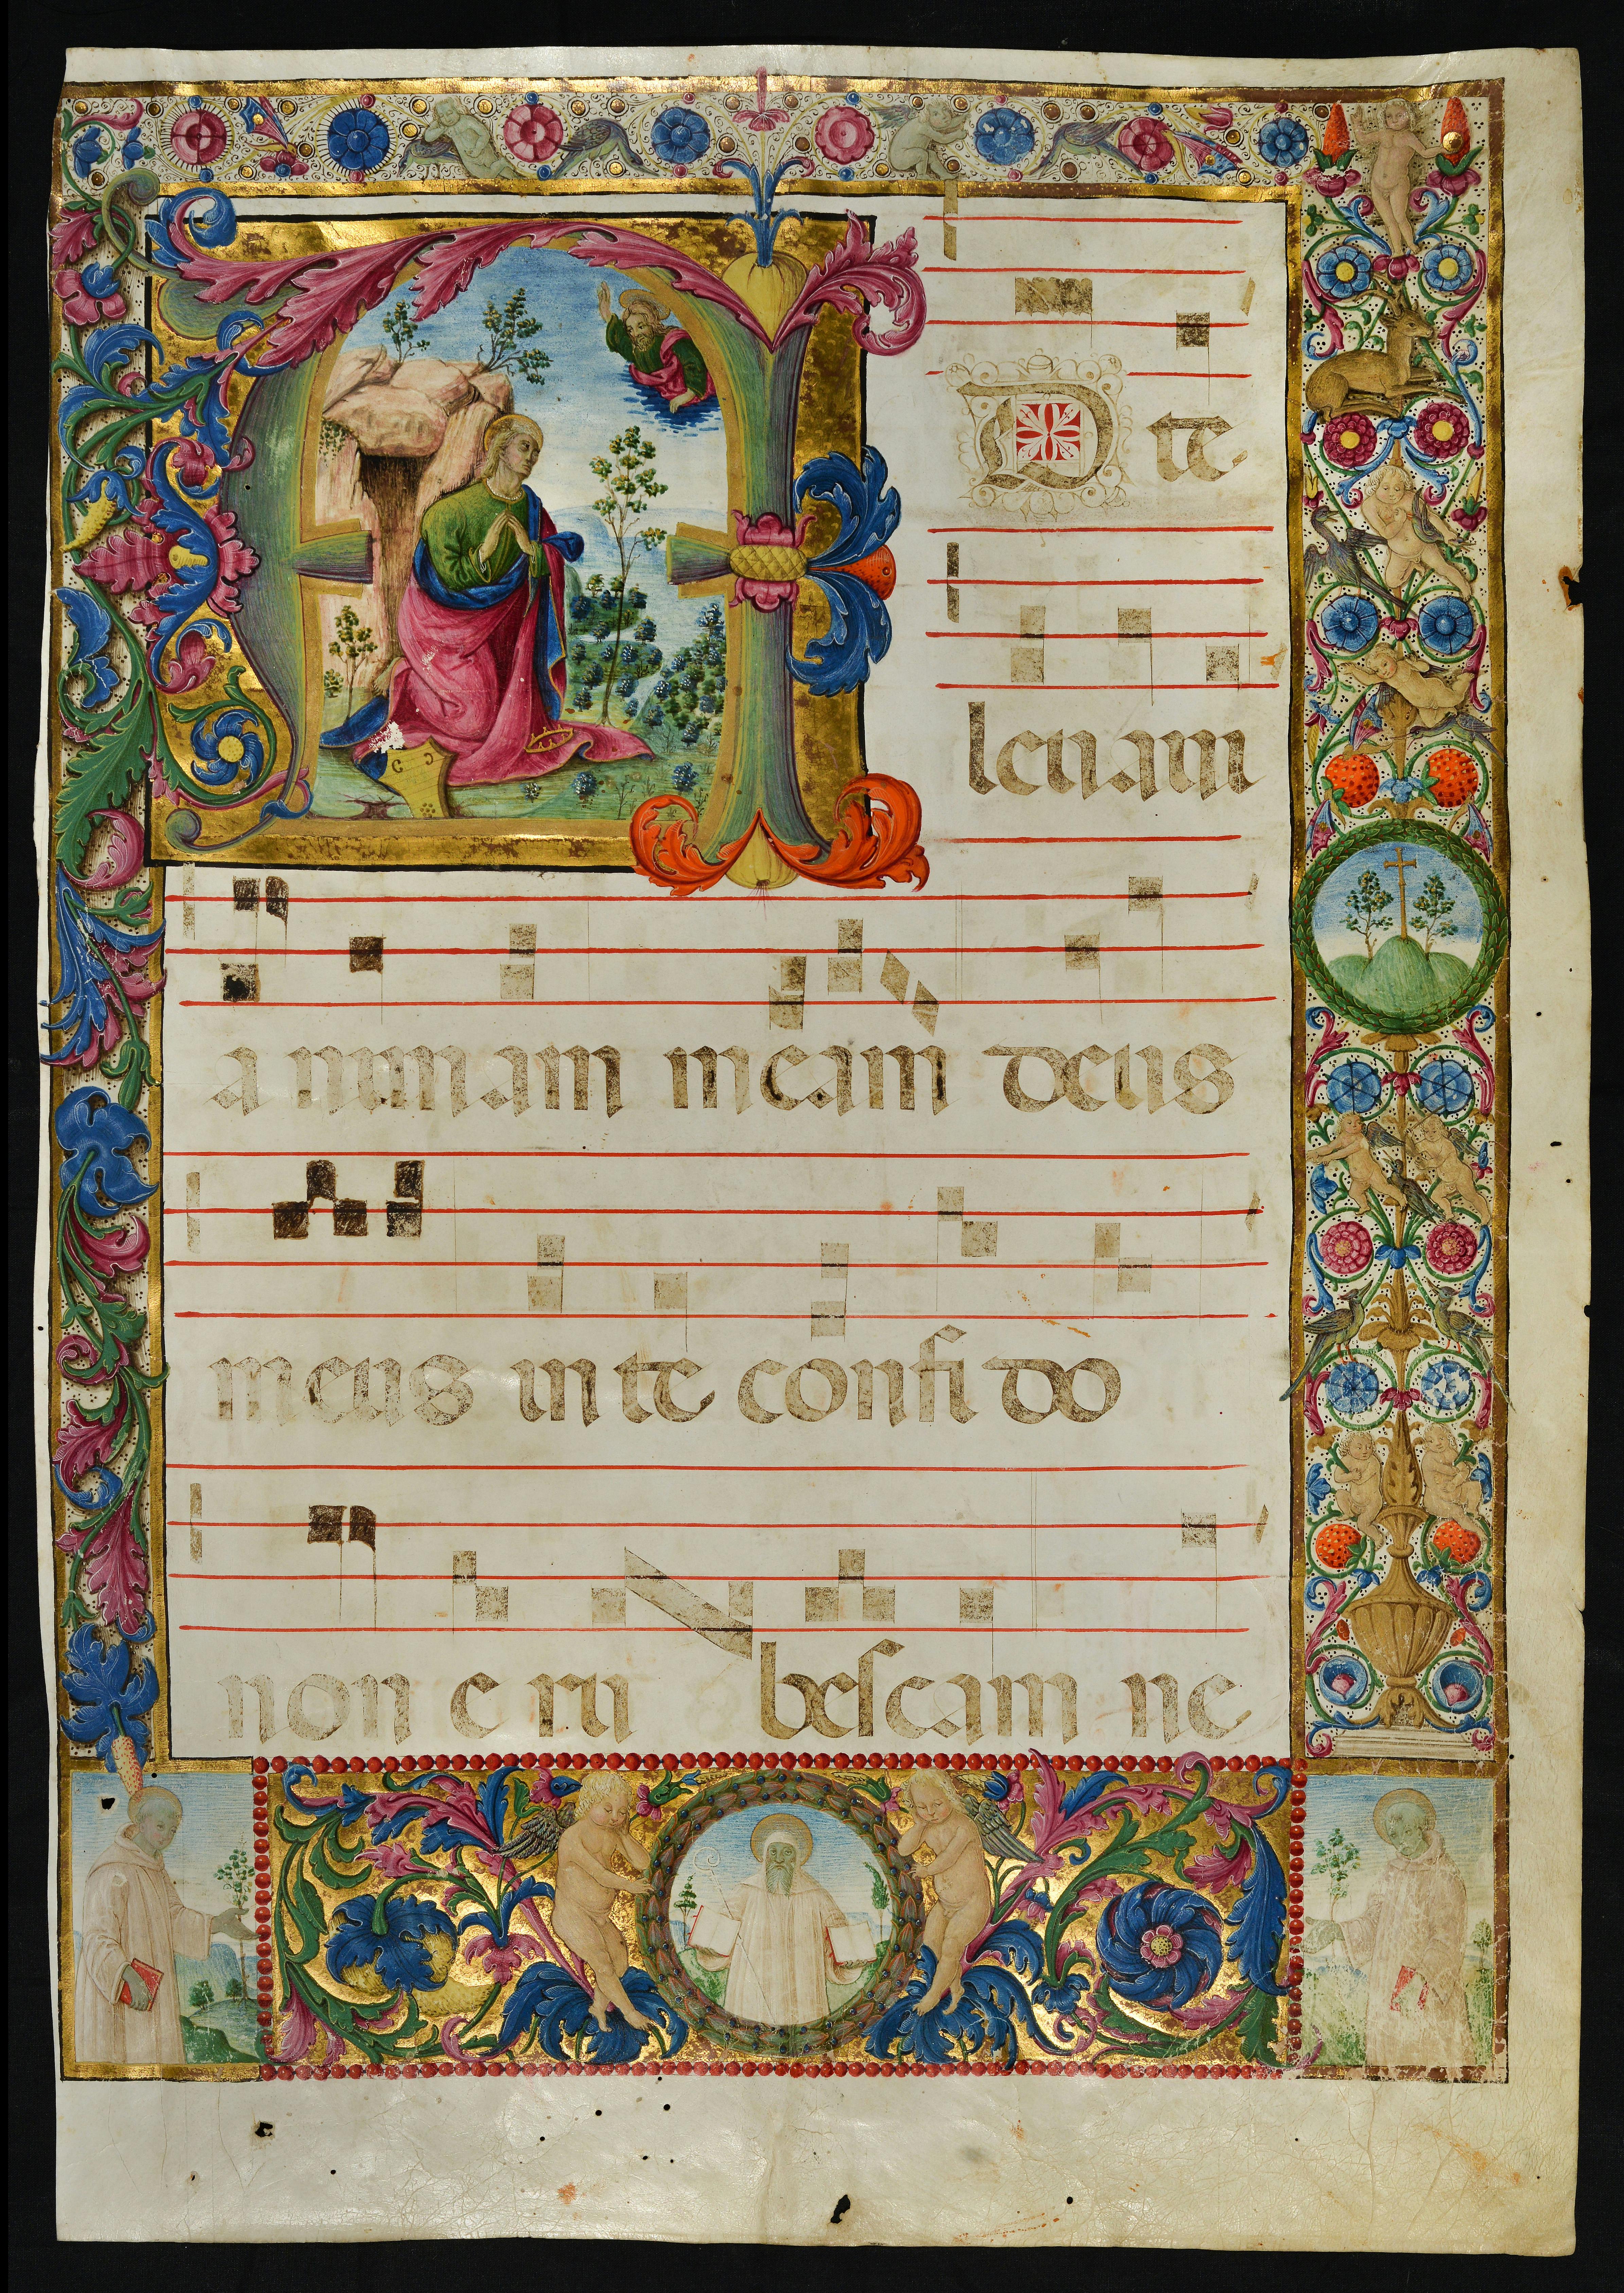 AD te
levam
a nimam meam deus
meus in te confi do
non e ru bescam ne